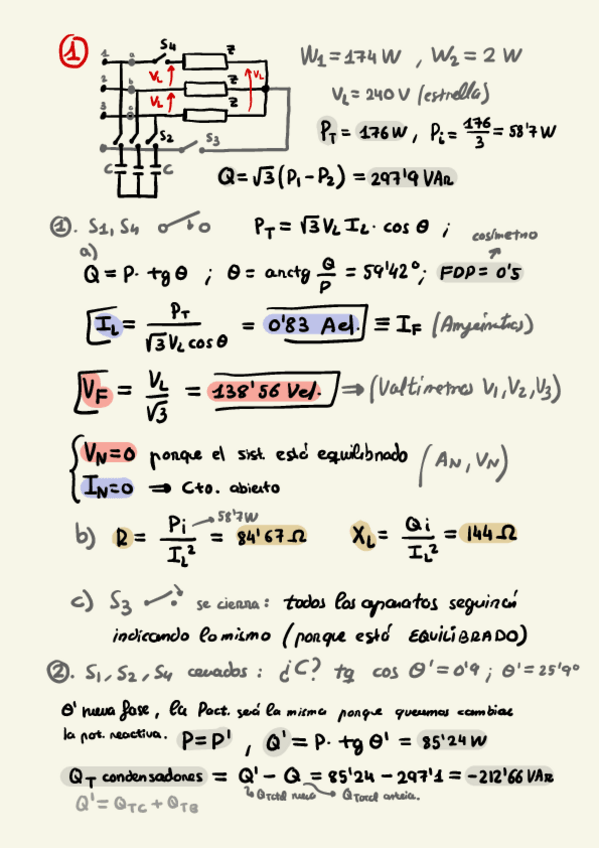 1
S4
1 a Z
VL
2 b Z VL
VL
3 c Z
S2 S3
C C
W1 = 174 W , W2 = 2 W
VL = 240 V (estrella)
PT = 176 W , Pi = 176/3 = 58'7 W
Q = √3 (P1 - P2) = 297'9 VAR
1. S1, S4
PT = √3 VL IL · cos θ ;
a)
Q = P · tg θ ; θ = arctg Q/P = 59'42° ; FDP = 0'5
cosímetro
IL = PT / √3 VL cos θ = 0'83 Aef. ≡ IF (Amperímetros)
VF = VL / √3 = 138'56 Vef. ⇒ (Voltímetros V1, V2, V3)
VN = 0 porque el sist. está equilibrado (AN, VN)
IN = 0 ⇒ Cto. abierto
b) R = Pi / IL² = 84'67 Ω XL = Qi / IL² = 144 Ω
58'7W
c) S3 se cierra : todos los aparatos seguirán
indicando lo mismo (porque está EQUILIBRADO)
2. S1, S2, S4 cerrados : ¿C? tq cos θ' = 0'9 ; θ' = 25'9°
θ' nueva fase, la Pact. será la misma porque queremos cambiar
la pot. reactiva. P = P' , Q' = P · tg θ' = 85'24 W
QT condensadores = Q' - Q = 85'24 - 297'1 = -212'66 VAR
QTotal nueva QTotal anterior.
Q' = QTC + QTB